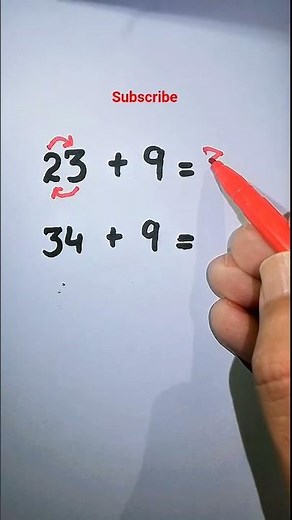 Subscribe
23 + 9 =
34 + 9 =